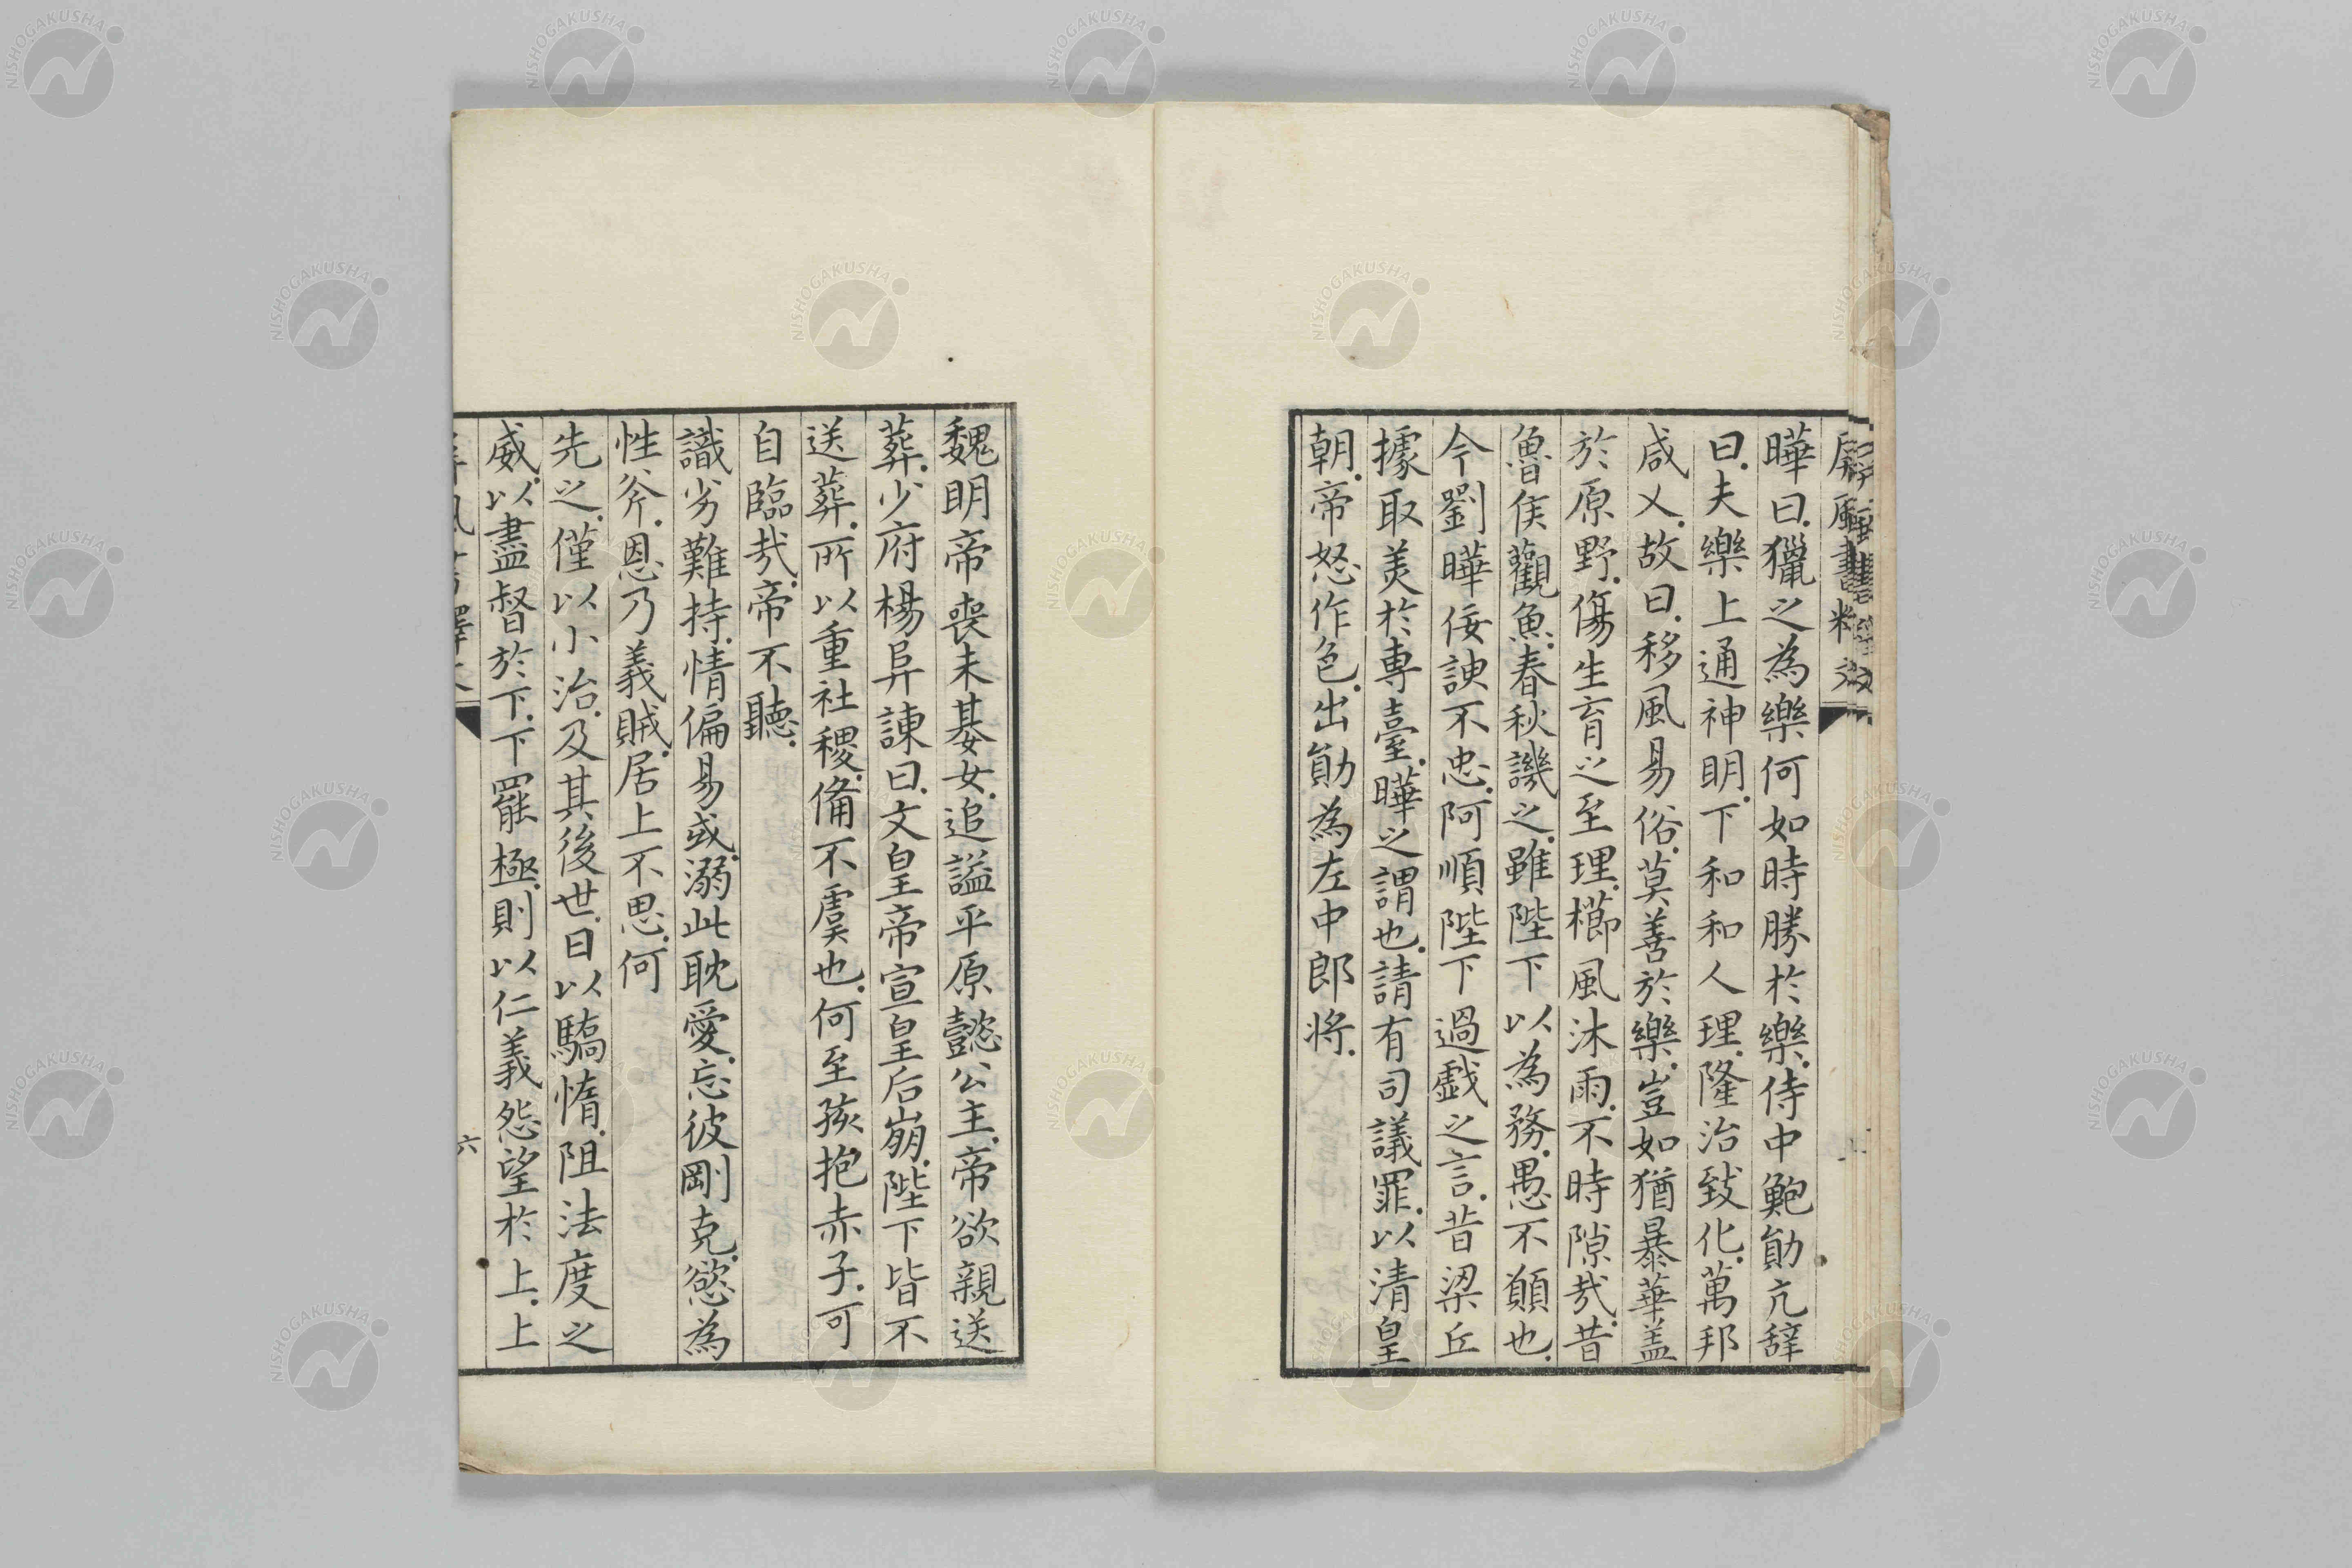 屏風書釋文
曄曰.獵之為樂何如時勝於樂.侍中鮑勛亢辭
曰.夫樂上通神明.下和和人理.隆治致化.萬邦
咸乂.故曰.移風易俗.莫善於樂.豈如猶暴華盖
於原野.傷生育之至理.櫛風沐雨.不時隙哉.昔
魯侯觀魚.春秋譏之.雖陛下以為務.愚不願也.
今劉曄佞諛不忠.阿順陛下過戯之言.昔梁丘
據取羙於専臺.曄之謂也.請有司議罪.以清皇
朝.帝怒作色.出勛為左中郎将.
魏明帝喪未朞女.追謚平原懿公主.帝欲親送
葬.少府楊异諫曰.文皇帝宣皇后崩.陛下皆不
送葬.所以重社稷.俻不虞也.何至孩抱赤子.可
自臨哉.帝不聽.
識劣難持.情偏易或.溺此耽愛.忘彼剛克.慾為
性斧.恩乃義賊.居上不思.何
先之.僅以小治.及其後世.曰以驕惰.阻法度之
威.以盡督於下.下罷極.則以仁義怨望於上.上
六